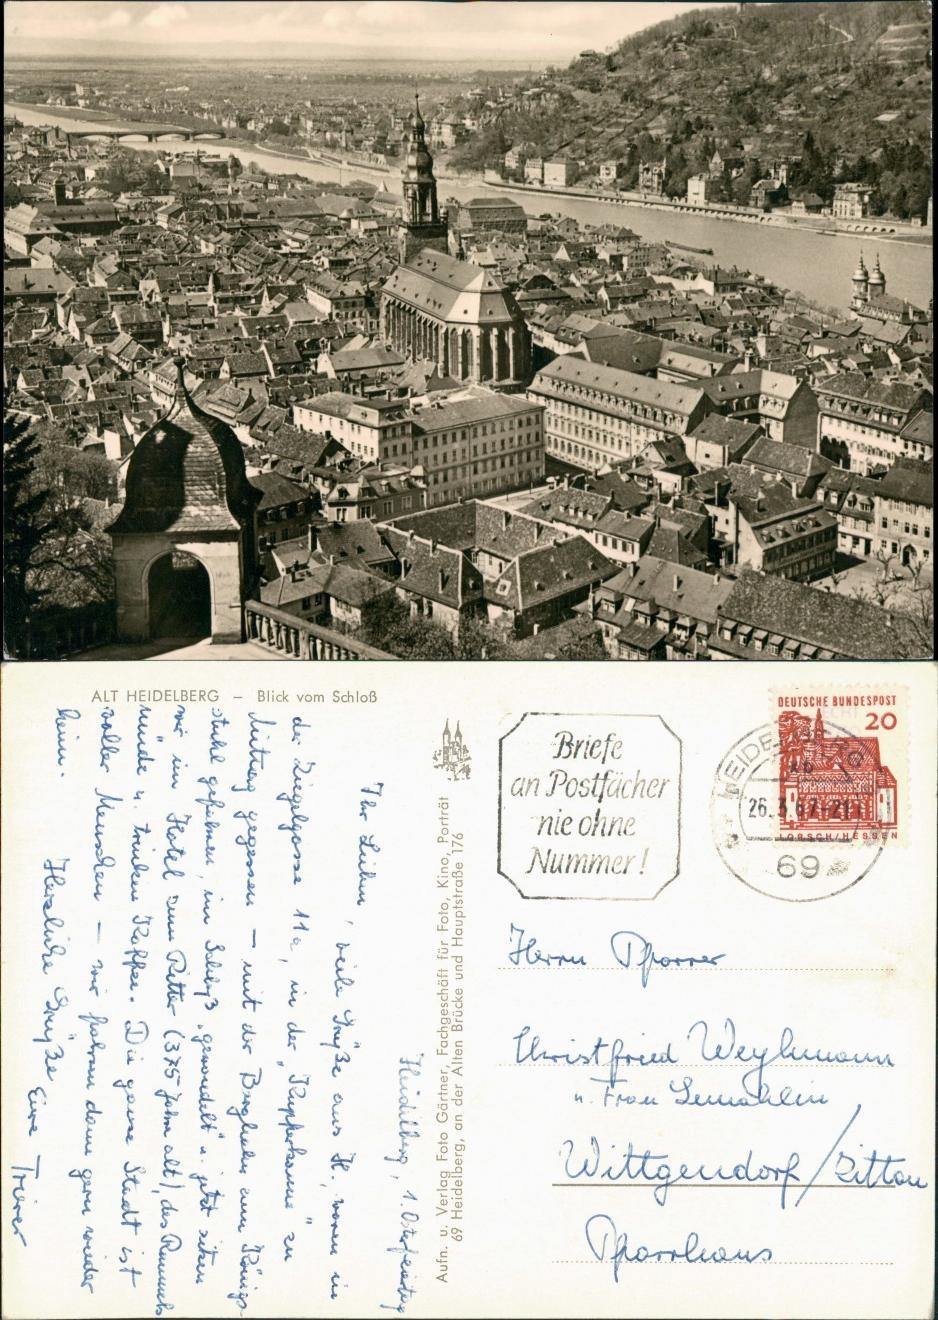 ALT HEIDELBERG – Blick vom Schloß
Heidelberg, 1. Osterfeiertag
Ihr Lieben, viele Grüße aus H. waren in
der Ziegelgasse 11a, in der „Kupferkanne" zu
Mittag gegessen – mit der Bergbahn am Königs-
stuhl gefahren, im Schloß „gewandelt" u. jetzt sitzen
wir im Hotel zum Ritter (375 Jahre alt), des Rummels
müde u. trinken Kaffee. Die ganze Stadt ist
voller Menschen – wir fahren dann gern wieder
heim.
Herzliche Grüße Eure Trierer
Aufn. u. Verlag Foto Gärtner, Fachgeschäft für Foto, Kino, Porträt
69 Heidelberg, an der Alten Brücke und Hauptstraße 176
Briefe
an Postfächer
nie ohne
Nummer!
HEIDELBERG
26.3.67-21
69
DEUTSCHE BUNDESPOST
20
LORSCH/HESSEN
Herrn Pfarrer
Christfried Weyhmann
u. Frau Gemahlin
Wittgendorf/Zittau
Pfarrhaus